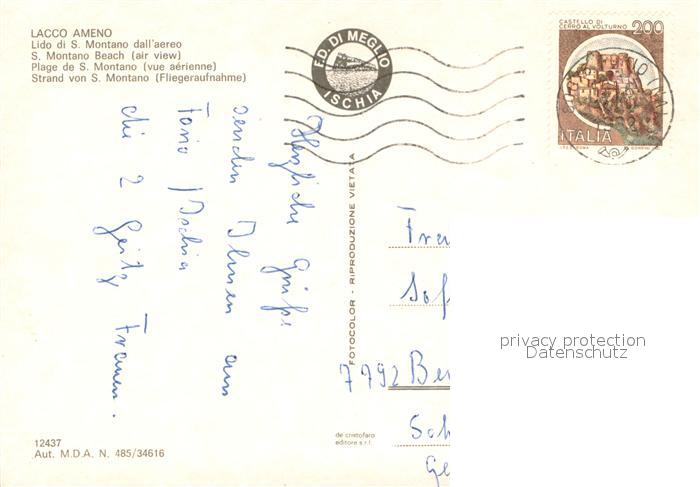 LACCO AMENO
Lido di S. Montano dall'aereo
S. Montano Beach (air view)
Plage de S. Montano (vue aérienne)
Strand von S. Montano (Fliegeraufnahme)
F.D. DI MEGLIO
ISCHIA
CASTELLO DI
CERRO AL VOLTURNO
200
ITALIA
Herzliche Grüße
senden Ihnen aus
Forio / Ischia
die 2 Geitz Frauen.
FOTOCOLOR - RIPRODUZIONE VIETATA
Fra
Sof
7792 Be
Sch
Ge
privacy protection
Datenschutz
de cristofaro
editore s.r.l.
12437
Aut. M.D.A. N. 485/34616